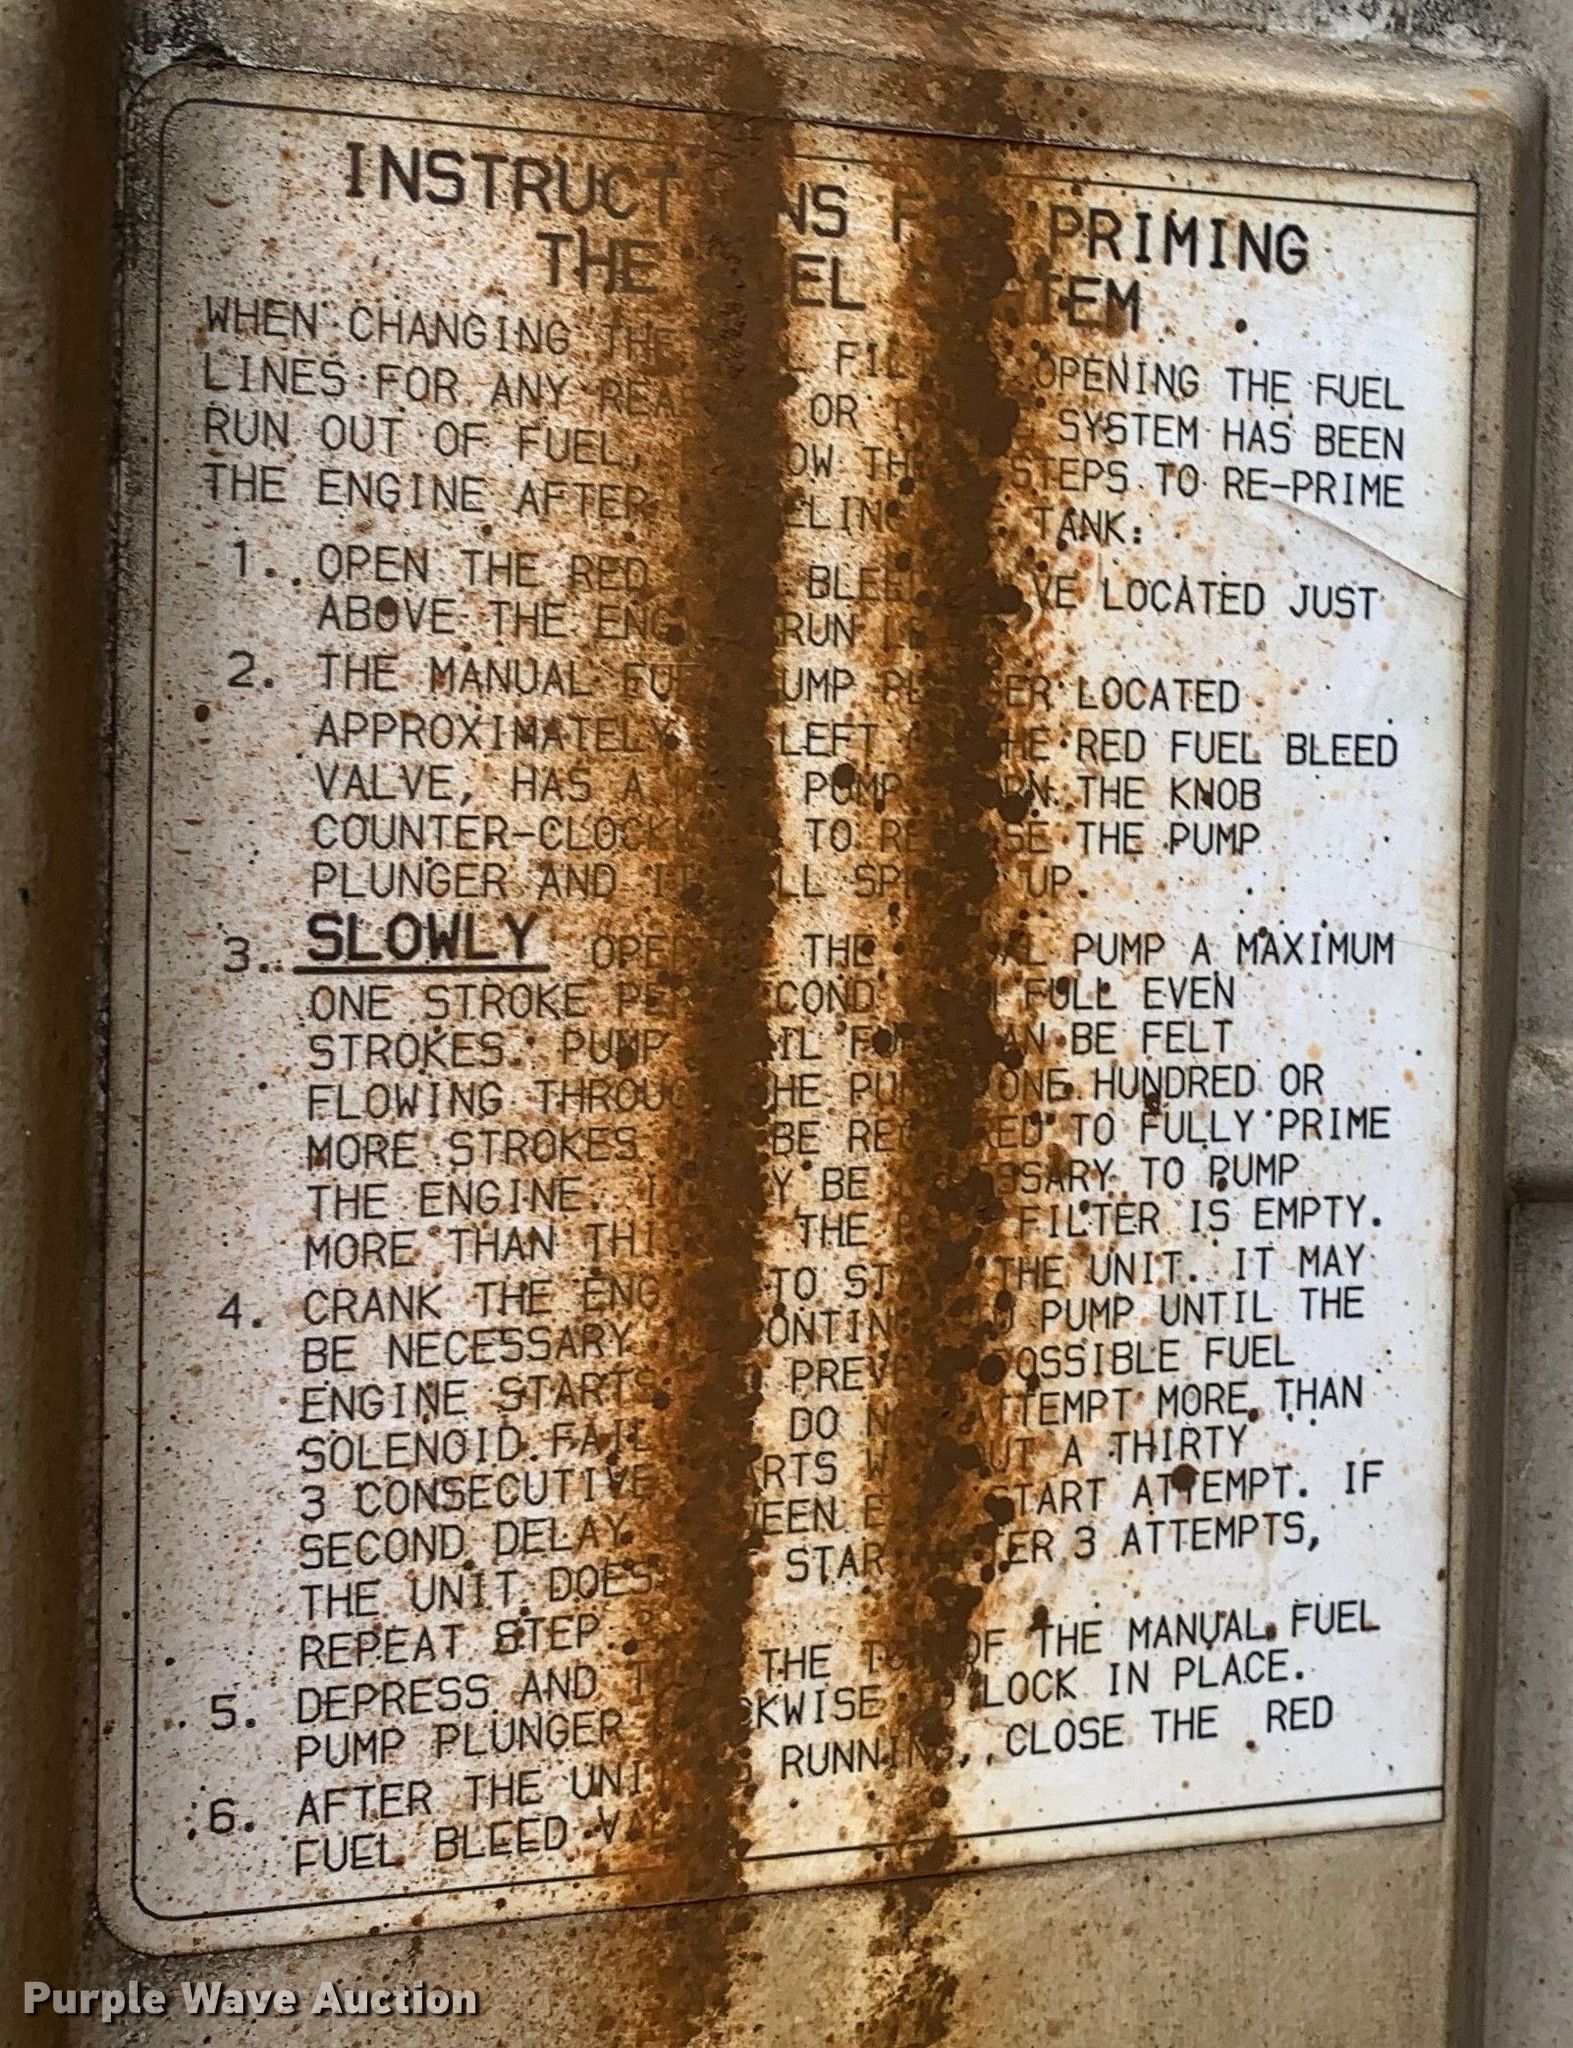 INSTRUCTIONS FOR PRIMING
THE FUEL SYSTEM
WHEN CHANGING THE FUEL FILTER, OPENING THE FUEL
LINES FOR ANY REASON, OR IF THE SYSTEM HAS BEEN
RUN OUT OF FUEL, FOLLOW THESE STEPS TO RE-PRIME
THE ENGINE AFTER REFUELING THE TANK:
1. OPEN THE RED FUEL BLEED VALVE LOCATED JUST
ABOVE THE ENGINE RUN
2. THE MANUAL FUEL PUMP PLUNGER LOCATED
APPROXIMATELY LEFT OF THE RED FUEL BLEED
VALVE, HAS A PUMP. TURN THE KNOB
COUNTER-CLOCKWISE TO RELEASE THE PUMP
PLUNGER AND IT WILL SPRING UP.
3. SLOWLY OPERATE THE MANUAL PUMP A MAXIMUM
ONE STROKE PER SECOND WITH FULL EVEN
STROKES. PUMP UNTIL FUEL CAN BE FELT
FLOWING THROUGH THE PUMP. ONE HUNDRED OR
MORE STROKES MAY BE REQUIRED TO FULLY PRIME
THE ENGINE. IT MAY BE NECESSARY TO PUMP
MORE THAN THIS IF THE FUEL FILTER IS EMPTY.
4. CRANK THE ENGINE TO START THE UNIT. IT MAY
BE NECESSARY TO CONTINUE TO PUMP UNTIL THE
ENGINE STARTS. TO PREVENT POSSIBLE FUEL
SOLENOID FAILURE, DO NOT ATTEMPT MORE THAN
3 CONSECUTIVE STARTS WITHOUT A THIRTY
SECOND DELAY BETWEEN EACH START ATTEMPT. IF
THE UNIT DOES NOT START AFTER 3 ATTEMPTS,
REPEAT STEP
5. DEPRESS AND TURN THE TOP OF THE MANUAL FUEL
PUMP PLUNGER CLOCKWISE TO LOCK IN PLACE.
6. AFTER THE UNIT IS RUNNING, CLOSE THE RED
FUEL BLEED VALVE
Purple Wave Auction